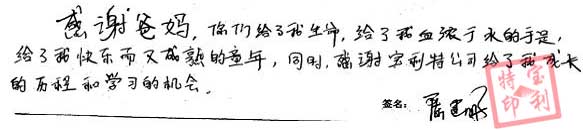 感谢爸妈，你们给了我生命，给了我血浓于水的手足，
给了我快乐而又成熟的童年，同时，感谢宝利特公司给了我成长
的历程和学习的机会。
签名：
宝利
特印